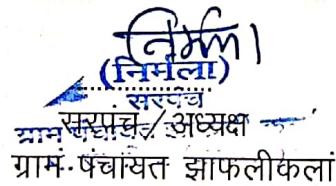 निर्मला
(निर्मला)
सरपंच
सरपंच / अध्यक्ष
ग्राम
ग्राम पंचायत झाफलीकलां